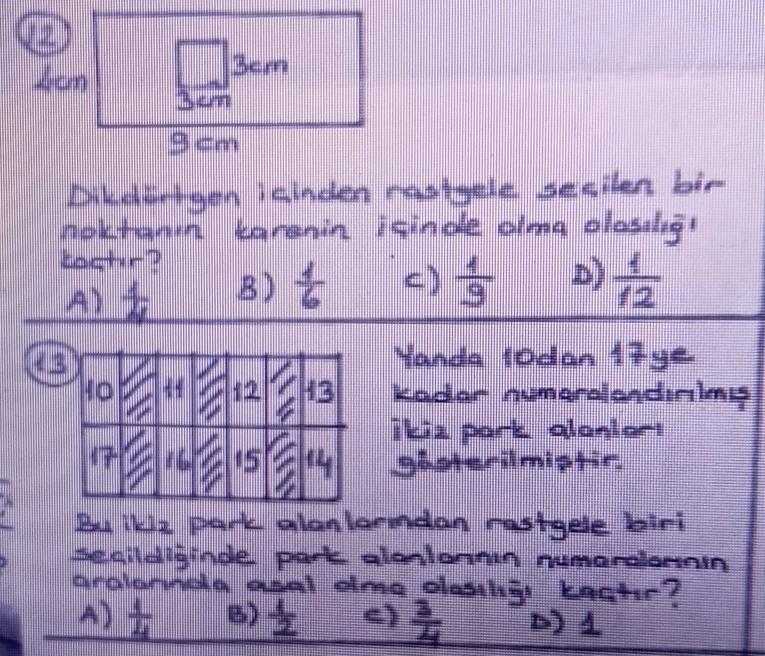 12
4cm
3cm
3cm
9 cm
Dikdörtgen içinden rastgele seçilen bir
noktanın karenin içinde olma olasılığı
kaçtır?
A) 1/4 B) 1/6 C) 1/9 D) 1/12
13
10 11 12 13
17 16 15 14
Yanda 10dan 17ye
kadar numaralandırılmış
ikiz park alanları
gösterilmiştir.
Bu ikiz park alanlarından rastgele biri
seçildiğinde park alanlarının numaralarının
aralarında asal olma olasılığı kaçtır?
A) 1/4 B) 1/2 C) 3/4 D) 1